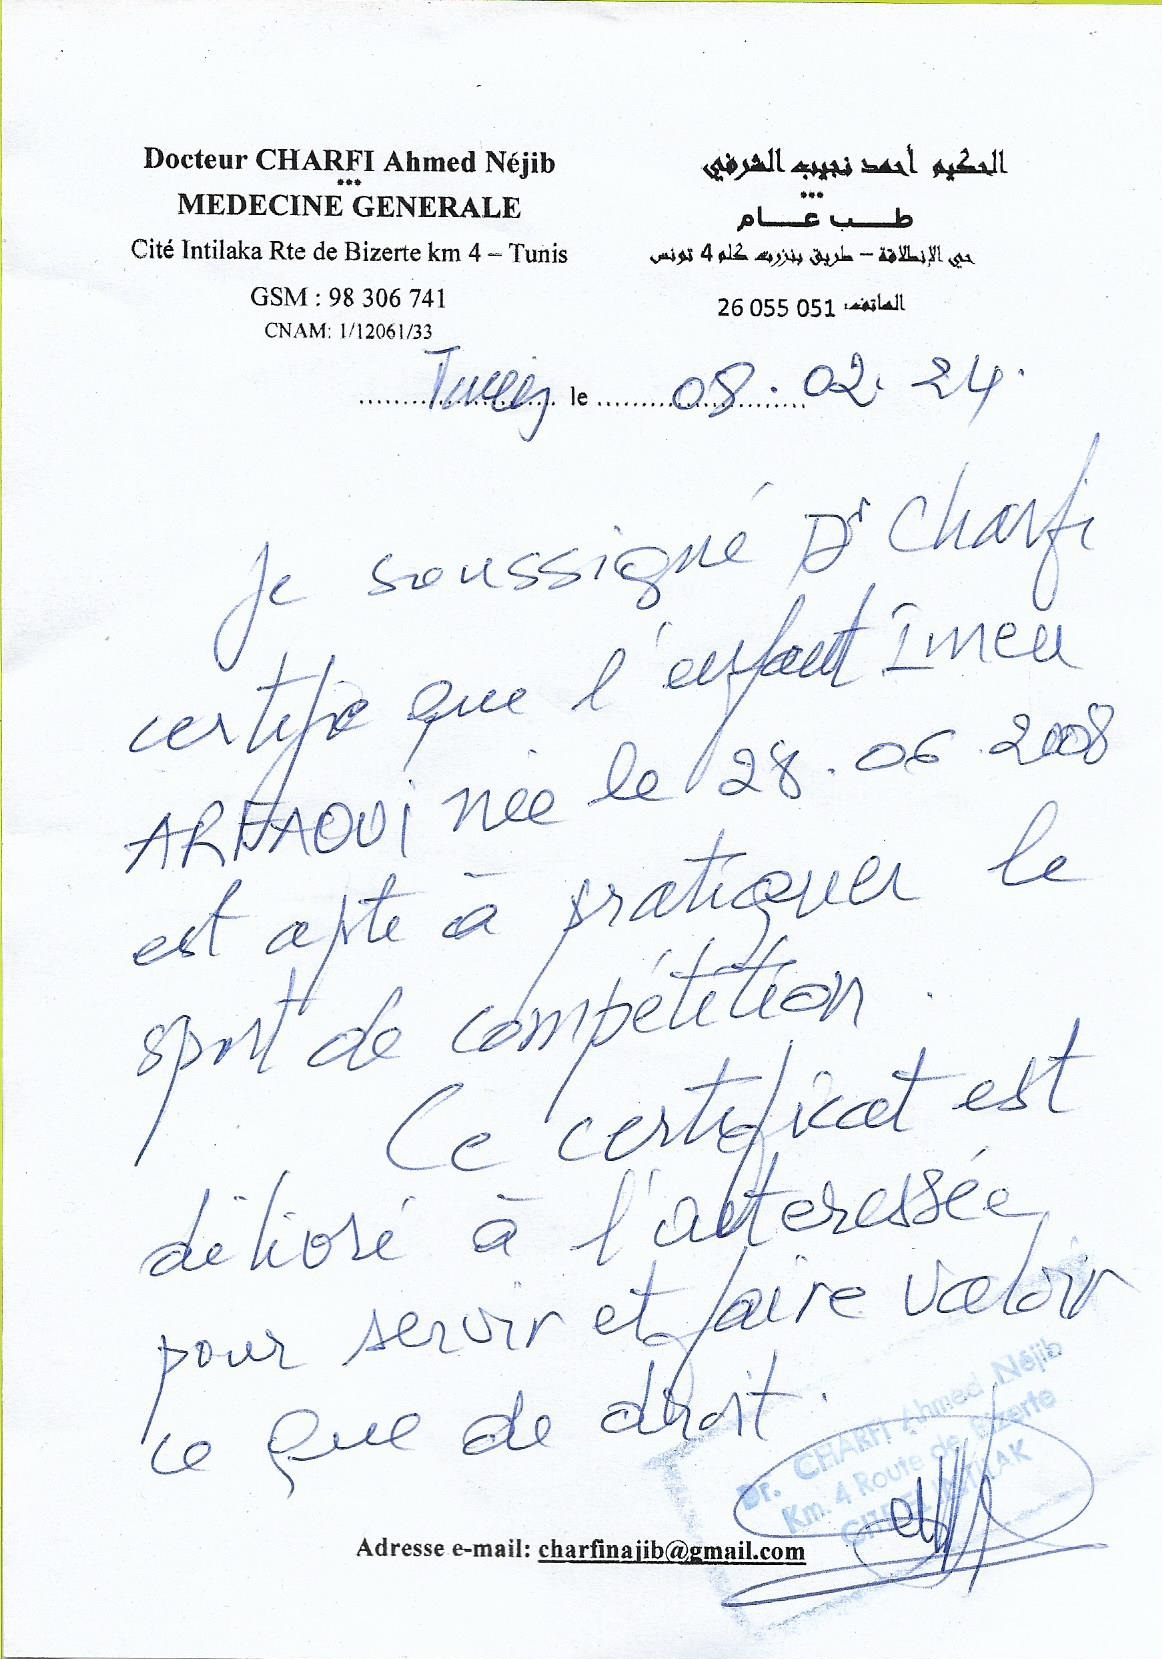 Docteur CHARFI Ahmed Néjib
***
MEDECINE GENERALE
Cité Intilaka Rte de Bizerte km 4 – Tunis
GSM : 98 306 741
CNAM: 1/12061/33
الحكيم أحمد نجيب الشرفي
***
طب عام
حي الإنطلاقة – طريق بنزرت كلم 4 تونس
الهاتف: 26 055 051
Tunis le 08.02.24.
Je soussigné Dr Charfi
certifie que l'enfant Imen
ARFAOUI née le 28.06.2008
est apte à pratiquer le
sport de compétition.
Ce certificat est
délivré à l'interessée
pour servir et faire valoir
ce que de droit.
Dr. CHARFI Ahmed Néjib
Km. 4 Route de Bizerte
Adresse e-mail: charfinajib@gmail.com